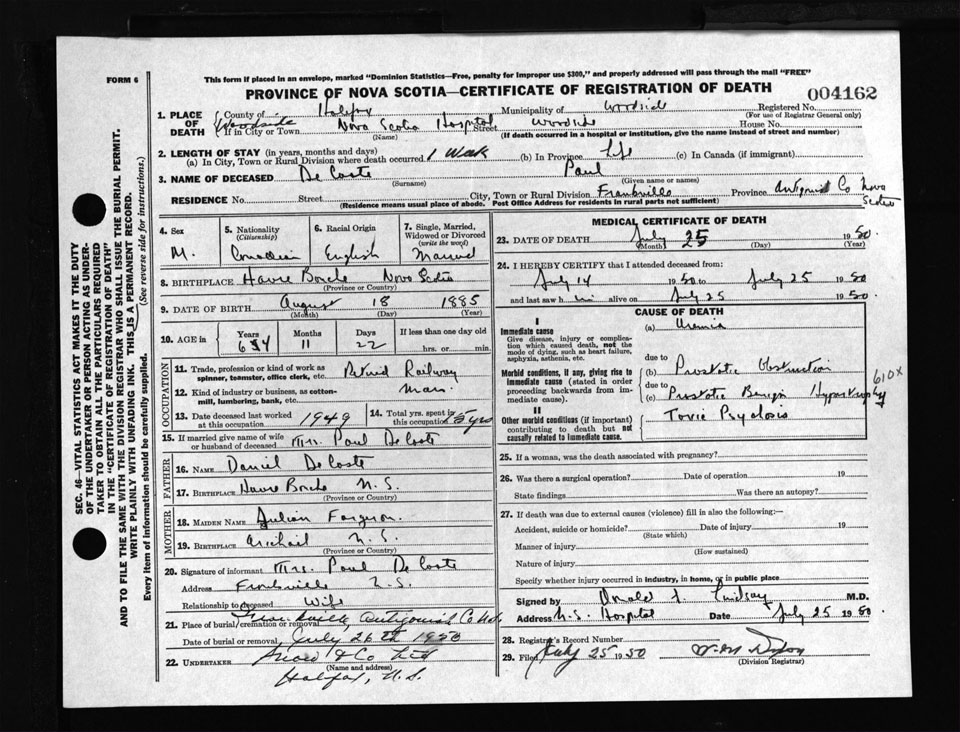 FORM 6
This form if placed in an envelope, marked "Dominion Statistics—Free, penalty for improper use $300," and properly addressed will pass through the mail "FREE"
PROVINCE OF NOVA SCOTIA—CERTIFICATE OF REGISTRATION OF DEATH
004162
1. PLACE OF DEATH
County of Halifax Municipality of Woodside Registered No.
(For use of Registrar General only)
Woodside If in City or Town Nova Scotia Hospital Street Woodside House No.
(Name) (If death occurred in a hospital or institution, give the name instead of street and number)
2. LENGTH OF STAY (in years, months and days)
(a) In City, Town or Rural Division where death occurred 1 Week (b) In Province Life (c) In Canada (if immigrant)
3. NAME OF DECEASED De Coste Paul
(Surname) (Given name or names)
RESIDENCE No. Street City, Town or Rural Division Province Antigonish Co Nova Scotia
(Residence means usual place of abode. Post Office Address for residents in rural parts not sufficient)
4. Sex M.
5. Nationality (Citizenship) Canadian
6. Racial Origin English
7. Single, Married, Widowed or Divorced (write the word) Married
8. BIRTHPLACE Havre Bouche Nova Scotia
(Province or Country)
9. DATE OF BIRTH August 18 1885
(Month) (Day) (Year)
10. AGE in Years 64 Months 11 Days 22 If less than one day old
hrs. or min.
OCCUPATION
11. Trade, profession or kind of work as spinner, teamster, office clerk, etc. Retired Railway
12. Kind of industry or business, as cotton-mill, lumbering, bank, etc. Man.
13. Date deceased last worked at this occupation 1949
14. Total yrs. spent in this occupation yrs
15. If married give name of wife or husband of deceased Mrs. Paul De Coste
FATHER
16. NAME Daniel De Coste
17. BIRTHPLACE Havre Bouche N.S.
(Province or Country)
MOTHER
18. MAIDEN NAME Julian Ferguson
19. BIRTHPLACE Arichait N.S.
(Province or Country)
20. Signature of informant Mrs. Paul De Coste
Address N.S.
Relationship to deceased Wife
21. Place of burial/cremation or removal Antigonish Co N.S.
Date of burial or removal July 26th 1950
22. UNDERTAKER Snow & Co Ltd
(Name and address)
Halifax, N.S.
MEDICAL CERTIFICATE OF DEATH
23. DATE OF DEATH July 25 1950
(Month) (Day) (Year)
24. I HEREBY CERTIFY that I attended deceased from:
July 14 1950 to July 25 1950
and last saw him alive on July 25 1950.
CAUSE OF DEATH
I
Immediate cause
Give disease, injury or complication which caused death, not the mode of dying, such as heart failure, asphyxia, asthenia, etc.
(a) Uremia
due to
Morbid conditions, if any, giving rise to immediate cause (stated in order proceeding backwards from immediate cause).
(b) Prostatic Obstruction
due to
(c) Prostatic Benign Hypertrophy
610X
II
Other morbid conditions (if important) contributing to death but not causally related to immediate cause.
Toxic Psychosis
25. If a woman, was the death associated with pregnancy?
26. Was there a surgical operation? Date of operation 19
State findings Was there an autopsy?
27. If death was due to external causes (violence) fill in also the following:—
Accident, suicide or homicide? Date of injury 19
(State which)
Manner of injury
(How sustained)
Nature of injury
Specify whether injury occurred in industry, in home, or in public place
Signed by Donald F. Lindsay M.D.
Address N.S. Hospital Date July 25 1950
28. Registrar's Record Number
29. Filed July 25 1950
(Division Registrar)
SEC. 46—VITAL STATISTICS ACT MAKES IT THE DUTY
OF THE UNDERTAKER OR PERSON ACTING AS UNDERTAKER TO OBTAIN ALL THE PARTICULARS REQUIRED
IN THE "CERTIFICATE OF REGISTRATION OF DEATH"
AND TO FILE THE SAME WITH THE DIVISION REGISTRAR WHO SHALL ISSUE THE BURIAL PERMIT.
WRITE PLAINLY WITH UNFADING INK. THIS IS A PERMANENT RECORD.
Every item of Information should be carefully supplied. (See reverse side for instructions.)